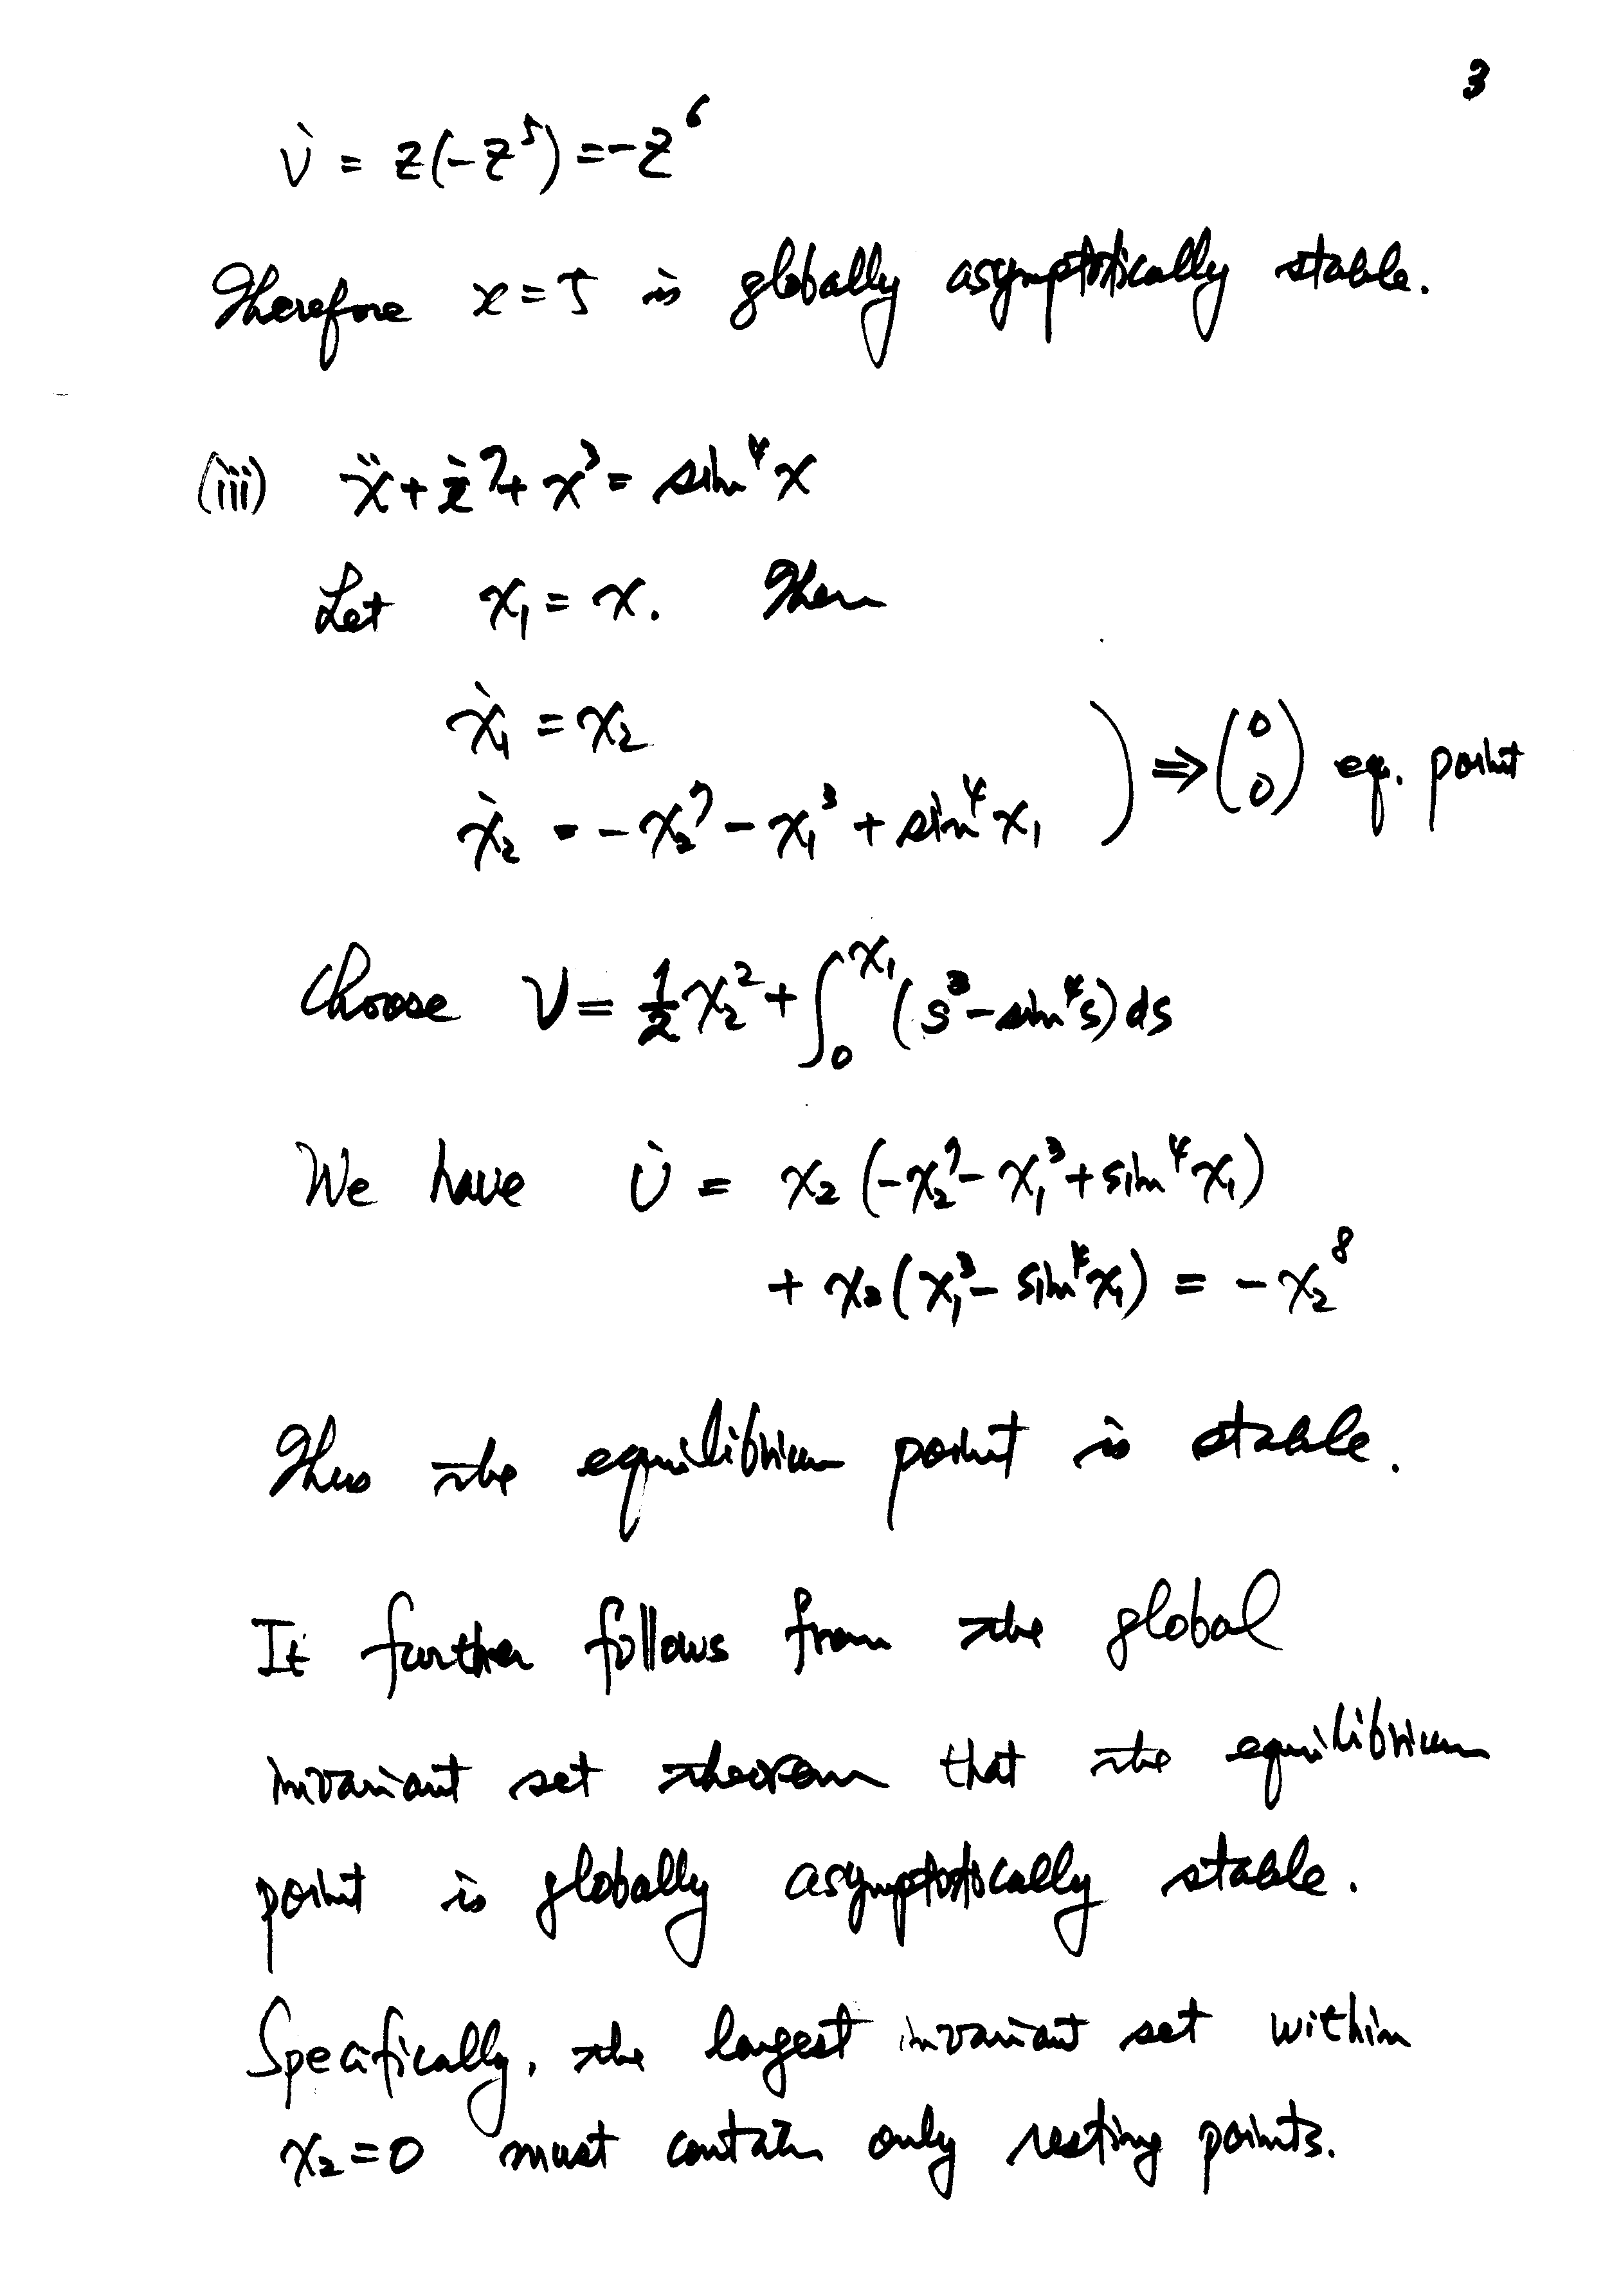 3
V̇ = z(-z⁵) = -z⁶
Therefore x = 5 is globally asymptotically stable.
(iii) ẍ + ẋ⁷ + x³ = sin⁴x
Let x₁ = x. Then
ẋ₁ = x₂
ẋ₂ = -x₂⁷ - x₁³ + sin⁴x₁ ) ⇒ (0 0) eq. point
Choose V = 1/2 x₂² + ∫₀^x₁ (s³ - sin⁴s) ds
We have V̇ = x₂ (-x₂⁷ - x₁³ + sin⁴x₁)
+ x₂ (x₁³ - sin⁴x₁) = -x₂⁸
Thus the equilibrium point is stable.
It further follows from the global
invariant set theorem that the equilibrium
point is globally asymptotically stable.
Specifically, the largest invariant set within
x₂ = 0 must contain only resting points.